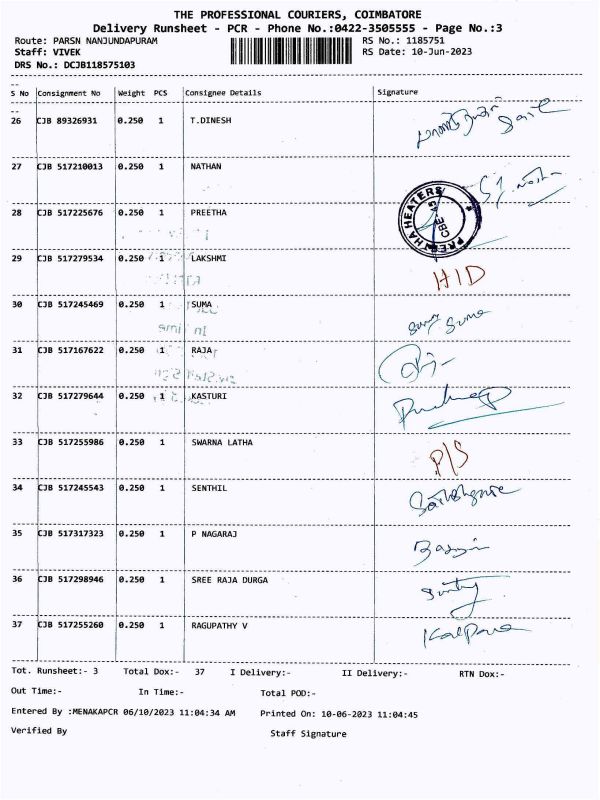 THE PROFESSIONAL COURIERS, COIMBATORE
Delivery Runsheet - PCR - Phone No.:0422-3505555 - Page No.:3
Route: PARSN NANJUNDAPURAM
RS No.: 1185751
Staff: VIVEK
RS Date: 10-Jun-2023
DRS No.: DCJB118575103
S No Consignment No Weight PCS Consignee Details Signature
26 CJB 89326931 0.250 1 T.DINESH
27 CJB 517210013 0.250 1 NATHAN
28 CJB 517225676 0.250 1 PREETHA
HEATERS CBE
29 CJB 517279534 0.250 1 LAKSHMI HID
30 CJB 517245469 0.250 1 SUMA Suma
31 CJB 517167622 0.250 1 RAJA
32 CJB 517279644 0.250 1 KASTURI
33 CJB 517255986 0.250 1 SWARNA LATHA P/S
34 CJB 517245543 0.250 1 SENTHIL
35 CJB 517317323 0.250 1 P NAGARAJ
36 CJB 517298946 0.250 1 SREE RAJA DURGA
37 CJB 517255260 0.250 1 RAGUPATHY V Kalpana
Tot. Runsheet:- 3 Total Dox:- 37 I Delivery:- II Delivery:- RTN Dox:-
Out Time:- In Time:- Total POD:-
Entered By :MENAKAPCR 06/10/2023 11:04:34 AM Printed On: 10-06-2023 11:04:45
Verified By Staff Signature